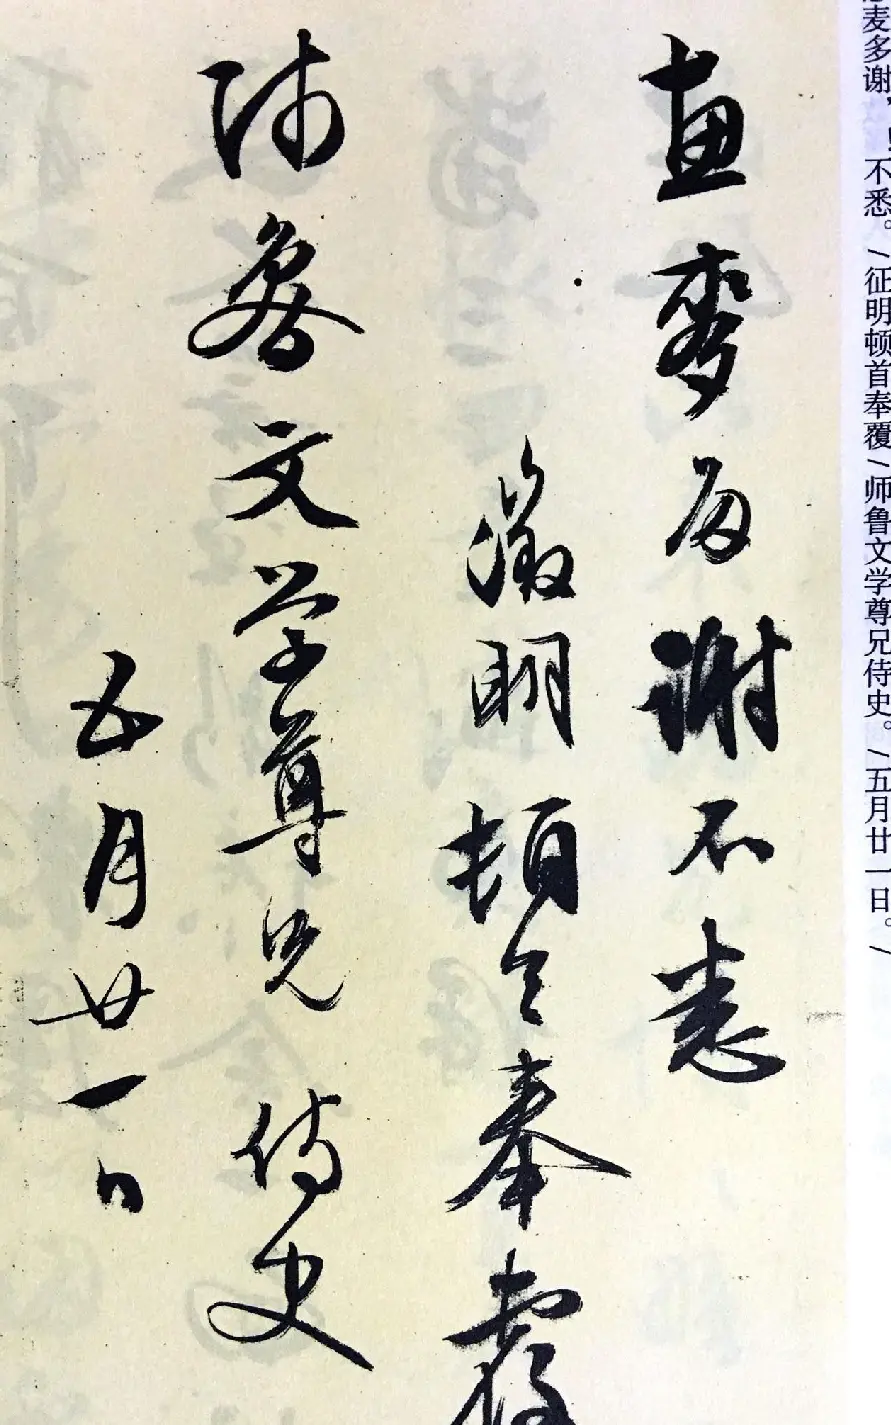 麦多谢，！不悉。/征明顿首奉覆/师鲁文学尊兄侍史。/五月廿一日。/
惠麥多謝不悉
徵明頓首奉覆
師魯文學尊兄侍史
五月廿一日